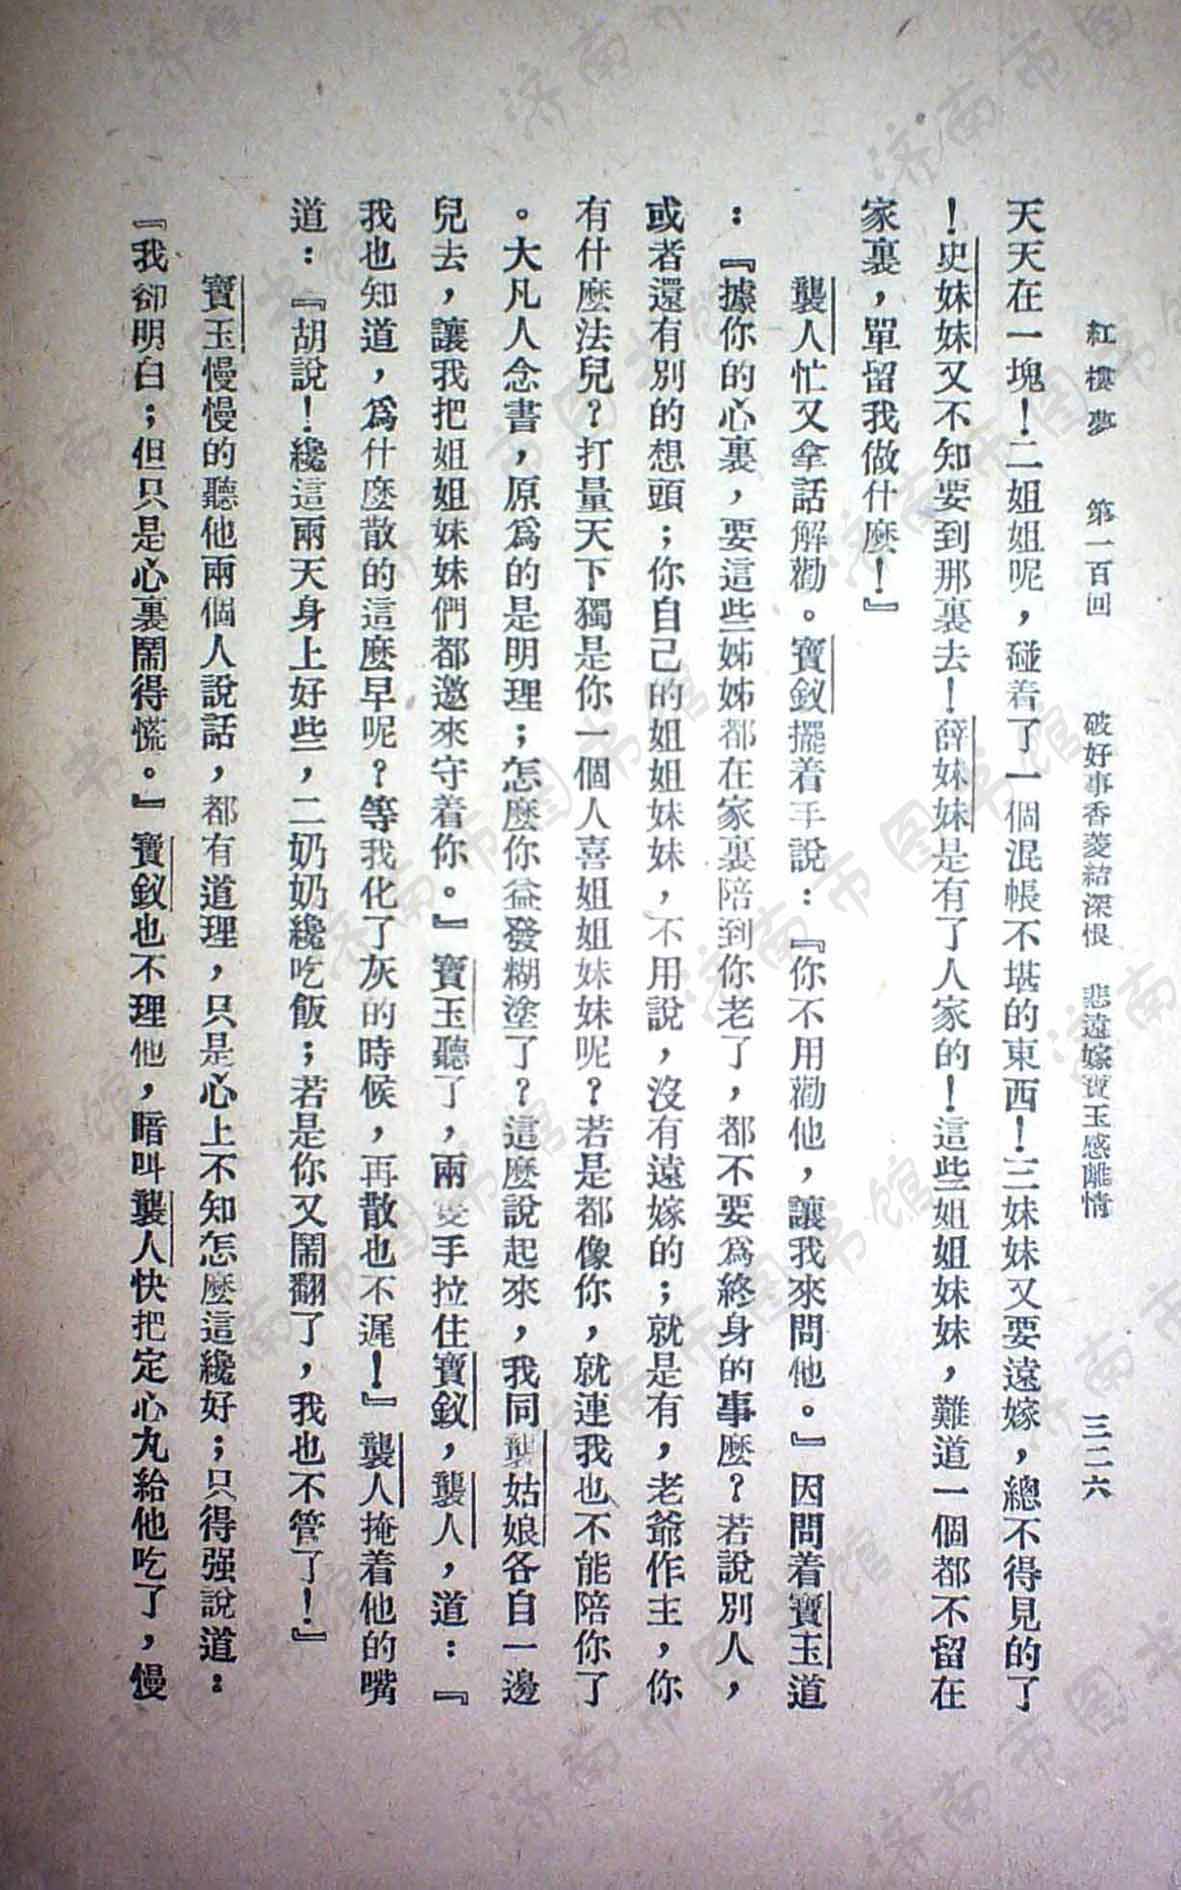 紅樓夢　第一百回　破好事香菱結深恨　悲遠嫁寶玉感離情　三二六
天天在一塊！二姐姐呢，碰着了一個混帳不堪的東西！三妹妹又要遠嫁，總不得見的了
！史妹妹又不知要到那裏去！薛妹妹是有了人家的！這些姐姐妹妹，難道一個都不留在
家裏，單留我做什麼！』
襲人忙又拿話解勸。寶釵擺着手說：『你不用勸他，讓我來問他。』因問着寶玉道
：『據你的心裏，要這些姊姊都在家裏陪到你老了，都不要爲終身的事麼？若說別人，
或者還有別的想頭；你自己的姐姐妹妹，不用說，沒有遠嫁的；就是有，老爺作主，你
有什麼法兒？打量天下獨是你一個人喜姐姐妹妹呢？若是都像你，就連我也不能陪你了
。大凡人念書，原爲的是明理；怎麼你益發糊塗了？這麼說起來，我同襲姑娘各自一邊
兒去，讓我把姐姐妹妹們都邀來守着你。』寶玉聽了，兩隻手拉住寶釵，襲人，道：『
我也知道，爲什麼散的這麼早呢？等我化了灰的時候，再散也不遲！』襲人掩着他的嘴
道：『胡說！纔這兩天身上好些，二奶奶纔吃飯；若是你又鬧翻了，我也不管了！』
寶玉慢慢的聽他兩個人說話，都有道理，只是心上不知怎麼這纔好；只得强說道：
『我卻明白；但只是心裏鬧得慌。』寶釵也不理他，暗叫襲人快把定心丸給他吃了，慢